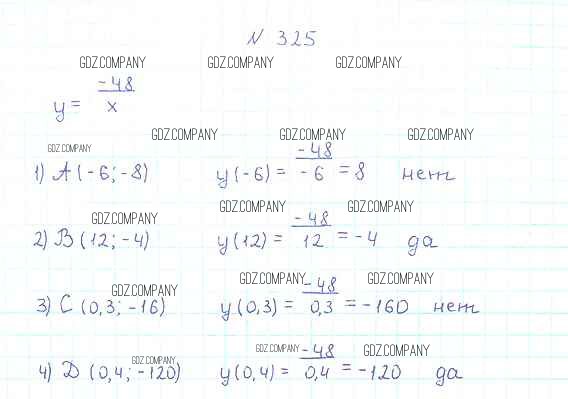 N 325
GDZ.COMPANY GDZ.COMPANY GDZ.COMPANY
y = -48/x
GDZ.COMPANY GDZ.COMPANY GDZ.COMPANY
GDZ.COMPANY
1) A (-6; -8) y(-6) = -48/-6 = 8 нет
GDZ.COMPANY GDZ.COMPANY GDZ.COMPANY
2) B (12; -4) y(12) = -48/12 = -4 да
GDZ.COMPANY GDZ.COMPANY GDZ.COMPANY
3) C (0,3; -16) y(0,3) = -48/0,3 = -160 нет
GDZ.COMPANY GDZ.COMPANY GDZ.COMPANY
4) D (0,4; -120) y(0,4) = -48/0,4 = -120 да